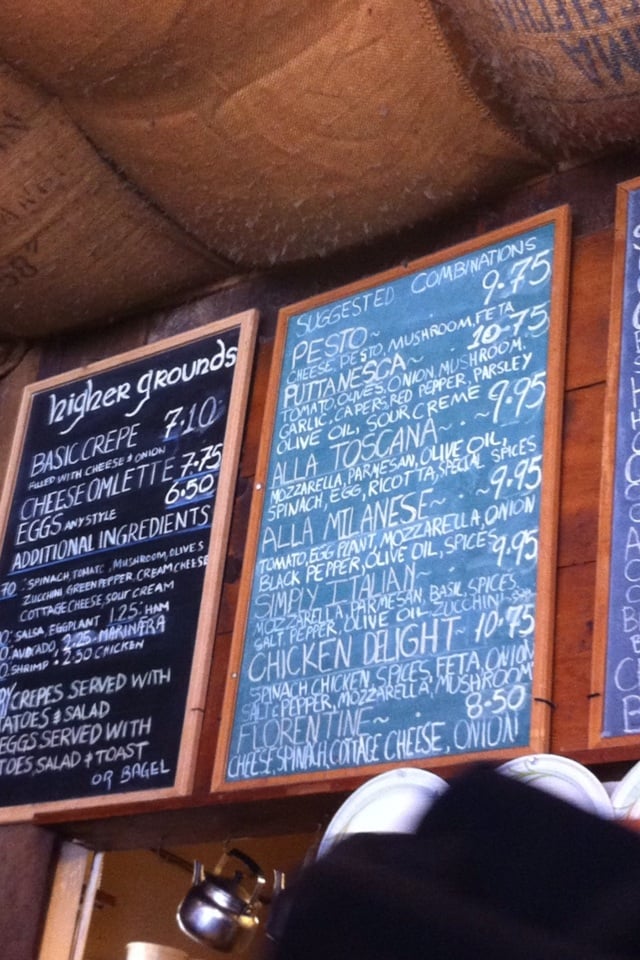 higher grounds
BASIC CREPE 7.10
FILLED WITH CHEESE & ONION
CHEESE OMLETTE 7.75
EGGS ANY STYLE 6.50
ADDITIONAL INGREDIENTS
SPINACH, TOMATO, MUSHROOM, OLIVES
ZUCCHINI GREEN PEPPER, CREAM CHEESE
COTTAGE CHEESE, SOUR CREAM
SALSA, EGGPLANT 1.25: HAM
AVOCADO, 2.25 MARINARA
SHRIMP: 2.50 CHICKEN
CREPES SERVED WITH
& SALAD
EGGS SERVED WITH
SALAD & TOAST
OR BAGEL
SUGGESTED COMBINATIONS
PESTO~ 9.75
CHEESE, PESTO, MUSHROOM, FETA
PUTTANESCA~ 10.75
TOMATO, OLIVES, ONION, MUSHROOM,
GARLIC, CAPERS, RED PEPPER, PARSLEY
OLIVE OIL, SOUR CREME
ALLA TOSCANA~ 9.95
MOZZARELLA, PARMESAN, OLIVE OIL,
SPINACH, EGG, RICOTTA, SPECIAL SPICES
ALLA MILANESE~ 9.95
TOMATO, EGG PLANT, MOZZARELLA, ONION
BLACK PEPPER, OLIVE OIL, SPICES
SIMPLY ITALIAN~ 9.95
MOZZARELLA, PARMESAN, BASIL SPICES
SALT PEPPER, OLIVE OIL ZUCCHINI
CHICKEN DELIGHT~ 10.75
SPINACH CHICKEN, SPICES, FETA, ONION
SALT & PEPPER, MOZZARELLA, MUSHROOM
FLORENTINE~ 8.50
CHEESE, SPINACH, COTTAGE CHEESE, ONION